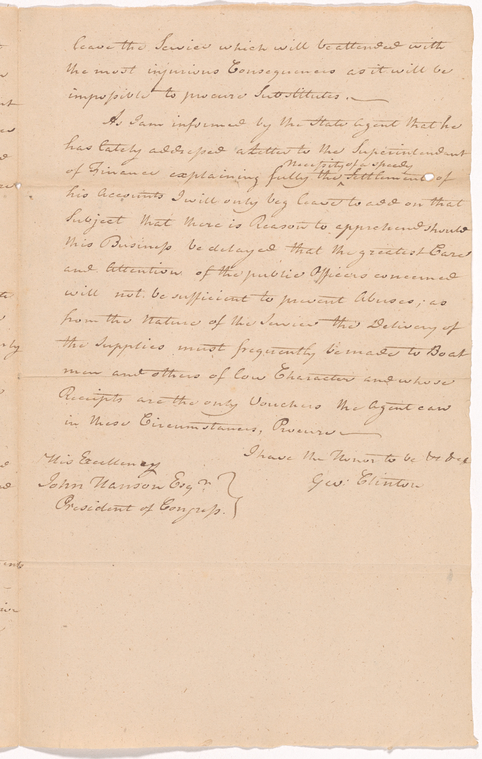 leave the Service which will be attended with
the most injurious Consequences as it will be
impossible to procure Substitutes.
As I am informed by the State Agent that he
has lately addressed a Letter to the Superintendant
Necessity of a speedy
of Finance explaining fully the ^ Settlement of
his Accounts I will only beg leave to add on that
Subject that there is Reason to apprehend should
this Business be delayed that the greatest Care
and Attention of the public Officers concerned
will not be sufficient to prevent Abuses; as
from the Nature of the Service the Delivery of
the Supplies must frequently be made to Boat
men and others of low Character and whose
Receipts are the only Vouchers the Agent can
in these Circumstances, Procure
I have the Honor to be &c &ca
Geo: Clinton
His Excellency
John Hanson Esqr
President of Congress.